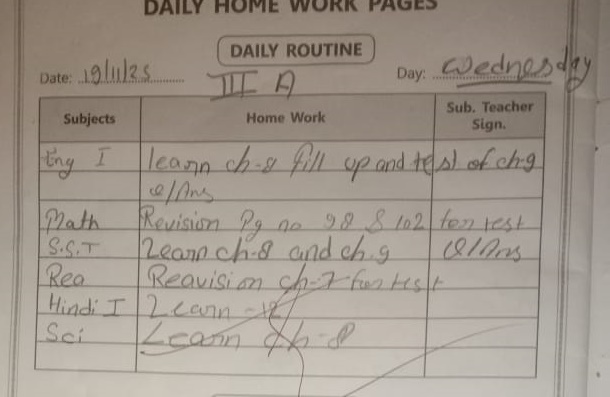 DAILY HOME WORK PAGES
DAILY ROUTINE
Date: 19/11/25 Day: Wednesday
III A
Subjects Home Work Sub. Teacher Sign.
Eng I learn ch-8 fill up and test of ch-9
Q/Ans
Math Revision Pg no 98 & 102 for test
S.S.T Learn ch-8 and ch-9 Q/Ans
Rea Reavision ch-7 for test
Hindi I Learn - 12
Sci Learn ch-8